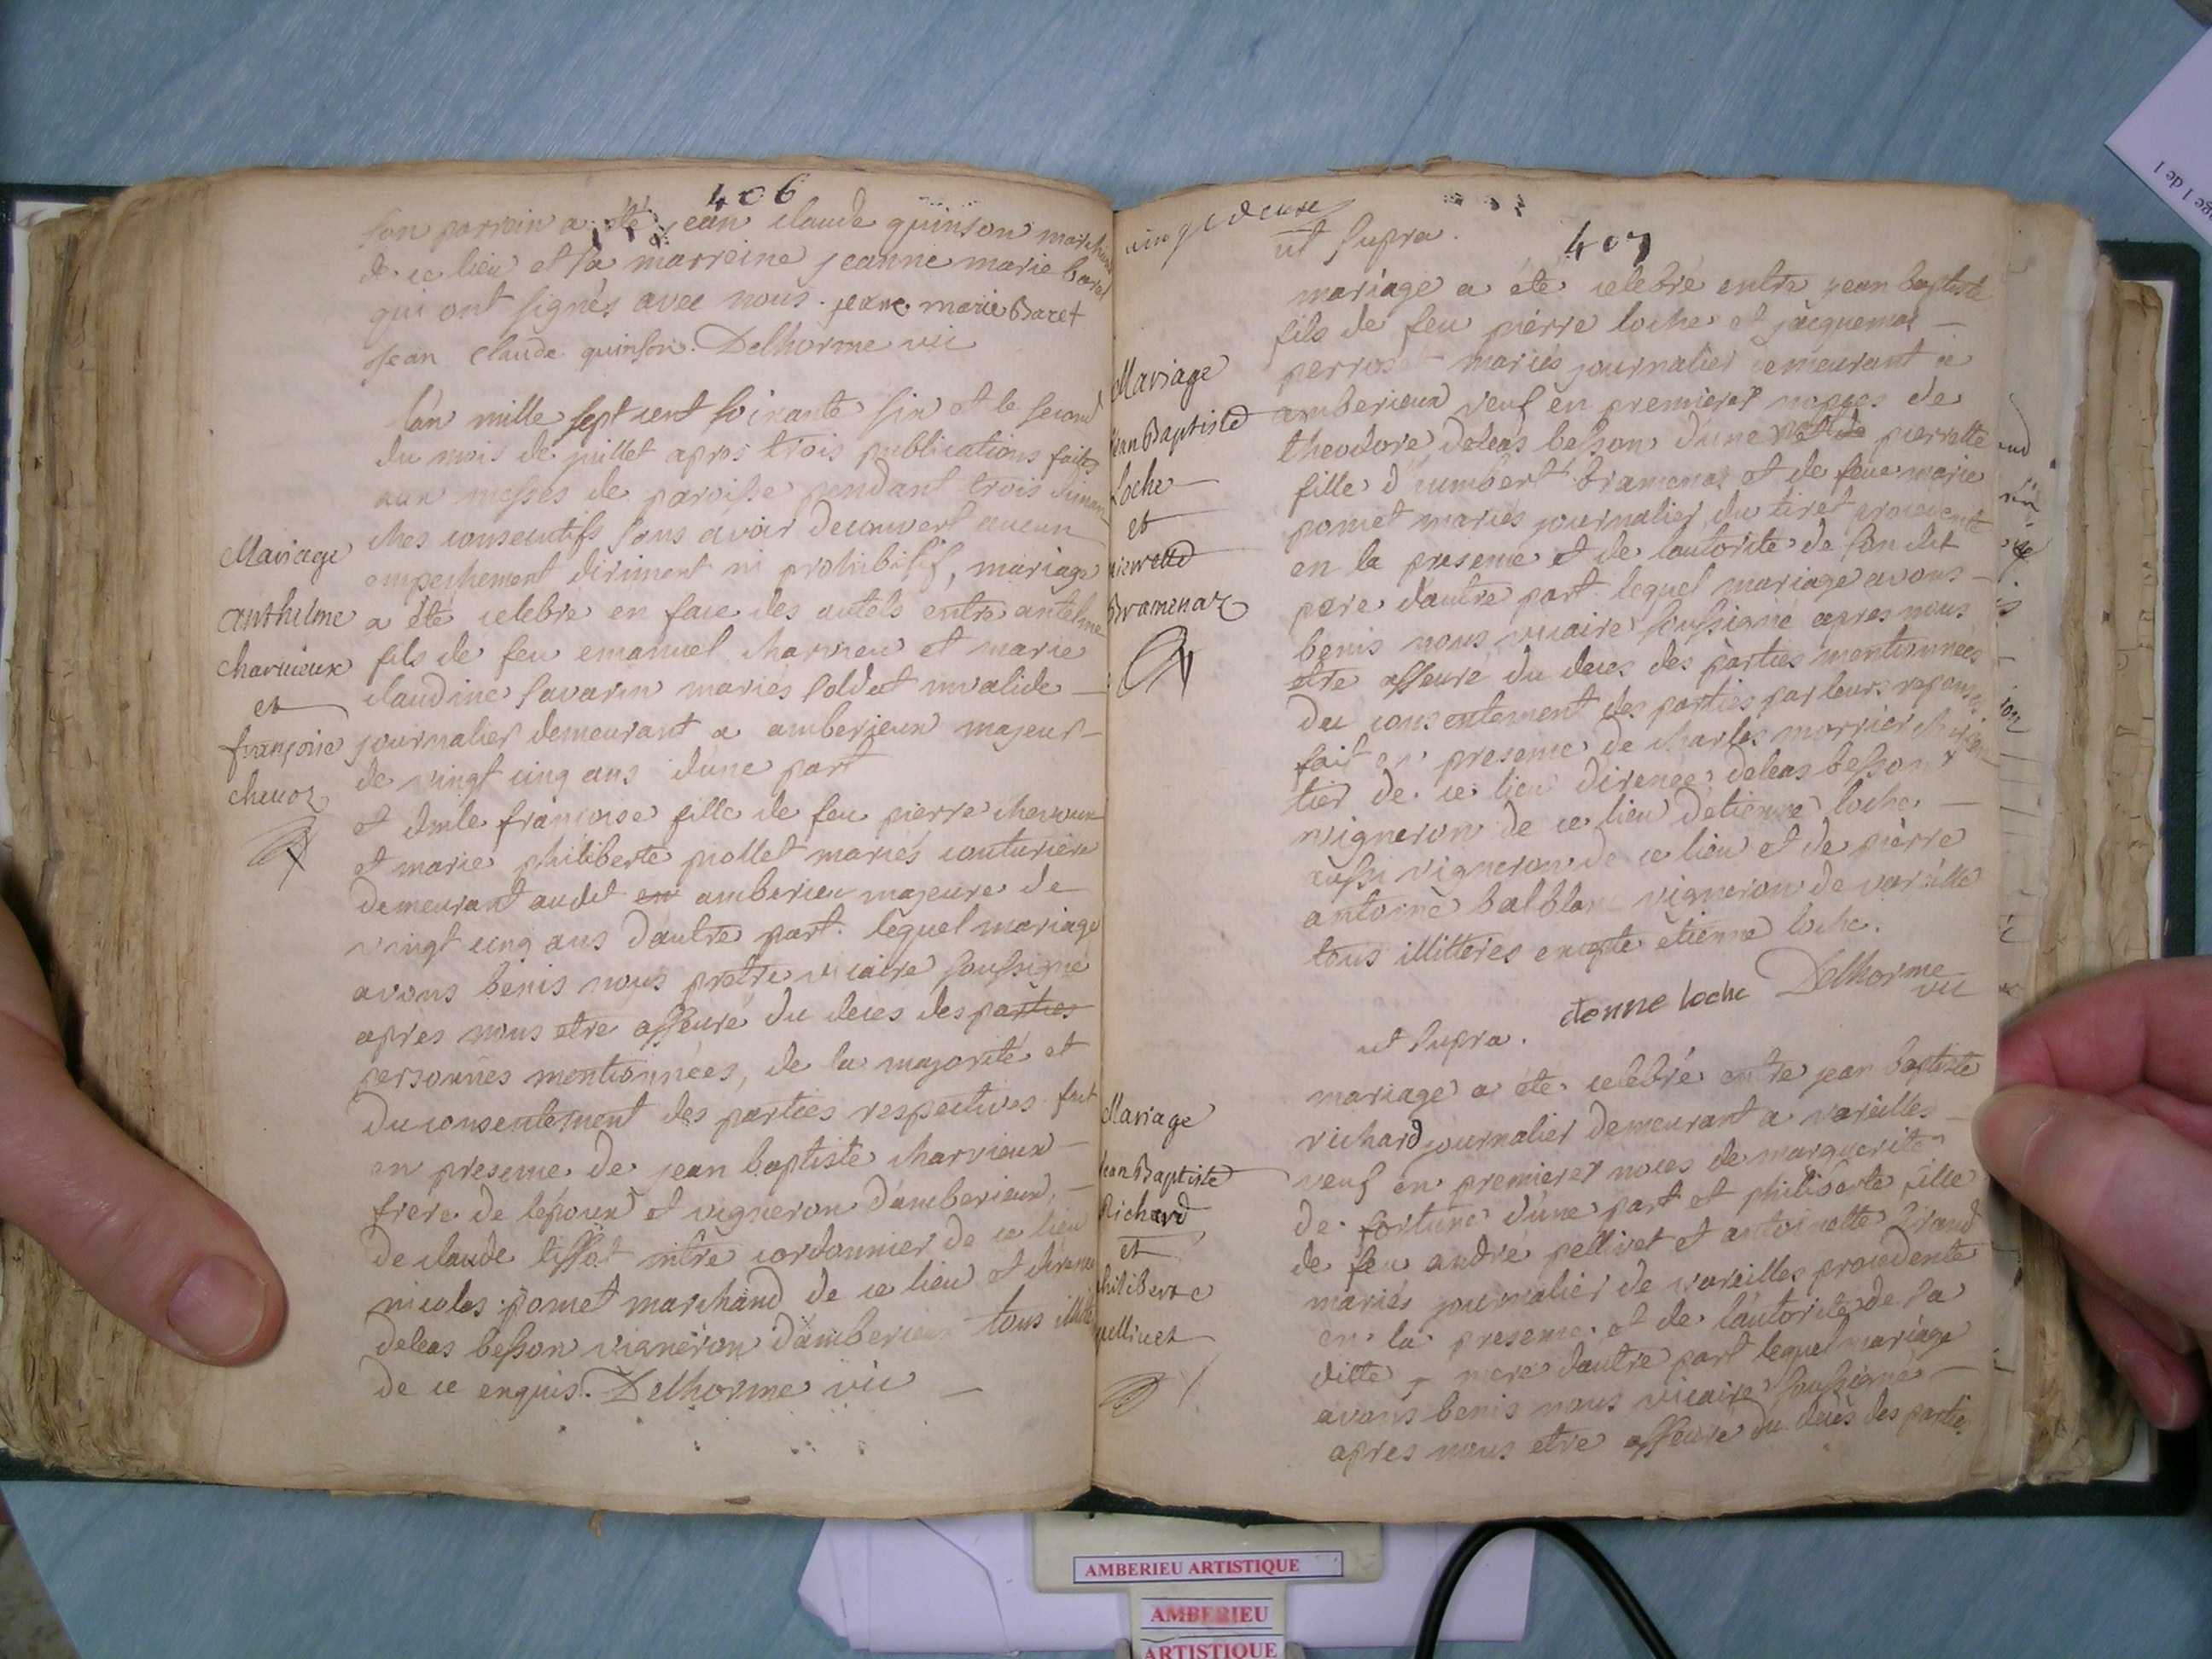 406
son parrein a été jean claude quinson marchand
de ce lieu et sa marreine jeanne marie baret
qui ont signés avec nous. jeane marie Baret
jean claude quinson. Delhorme vic
Mariage
anthelme
charvieux
et
françoise
chevoz
l'an mille sept cent soixante six et le second
du mois de juillet apres trois publications faites
aux messes de paroisse pendant trois diman
ches consecutifs sans avoir decouvert aucun
empeschement diriment ni prohibitif, mariage
a été celebre en face des autels entre antelme
fils de feu emanuel charvieu et marie
claudine savarin mariés soldat invalide
journalier demeurant a amberieux majeur
de vingt cinq ans d'une part
et dmle françoise fille de feu pierre chevoux
et marie philiberte piollet mariés couturiere
demeurant audit en amberieu majeure de
vingt cinq ans d'autre part. lequel mariage
avons benis nous pretre vicaire soussigné
apres nous etre asseuré du deces des parties
personnes mentionnées, de la majorité et
du consentement des parties respectives fait
en presence de jean baptiste charvieux
frere de lépoux et vigneron d'amberieux,
de claude tissot mtre cordonnier de ce lieu
nicolas pomet marchand de ce lieu et direnée
deleas besson vigneron d'amberieux tous illit
de ce enquis. Delhorme vic
407
ut supra.
Mariage
Jean Baptiste
Loche
et
pierrette
Bramenaz
mariage a été celebré entre jean baptiste
fils de feu pierre loche et jacquema
perroset mariés journalier demeurant a
amberieux veuf en premieres nopces de
theodore deleas besson d'une part de pierrette
fille d'humbert bramenas et de feue marie
pomet mariés journalier du tiret procedente
en la presence et de lautorite de son dit
pere d'autre part. lequel mariage avons
benis nous vicaire soussigné apres nous
etre asseuré du deces des parties mentionnees
du consentement des parties par leurs reponses
fait en presence de charles morrier
tier de ce lieu direnée deleas besson
vigneron de ce lieu d'etienne loche
aussi vigneron de ce lieu et de pierre
antoine balblanc vigneron de vareille
tous illitteres excepte etienne loche.
etienne loche Delhorme
vic
ut supra.
Mariage
Jean Baptiste
Richard
et
philiberte
pellivet
mariage a été celebré entre jean baptiste
richard journalier demeurant a vareilles
veuf en premieres noces de marguerite
de fortune d'une part et philiberte fille
de feu andré pellivet et antoinette grand
mariés journalier de vareilles procedente
en la presence et de l'autorite de sa
ditte mere d'autre part lequel mariage
avons benis nous vicaire soussigné
apres nous etre asseuré du decès des parties
AMBERIEU ARTISTIQUE
AMBERIEU
ARTISTIQUE